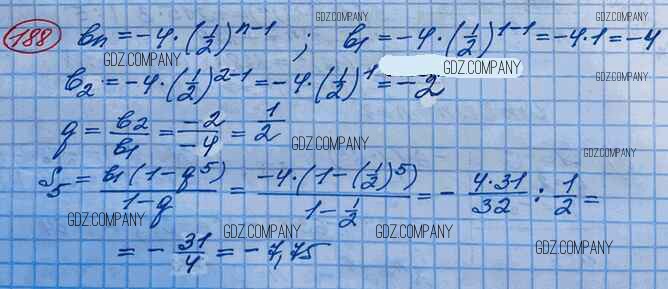 188 bₙ = -4 · (1/2)ⁿ⁻¹ ; b₁ = -4 · (1/2)¹⁻¹ = -4 · 1 = -4
b₂ = -4 · (1/2)²⁻¹ = -4 · (1/2)¹ = -2
q = b₂/b₁ = -2/-4 = 1/2
S₅ = b₁(1-q⁵)/1-q = -4·(1-(1/2)⁵)/1-1/2 = - 4·31/32 : 1/2 =
= - 31/4 = -7,75
GDZ.COMPANY
GDZ.COMPANY
GDZ.COMPANY
GDZ.COMPANY
GDZ.COMPANY
GDZ.COMPANY
GDZ.COMPANY
GDZ.COMPANY
GDZ.COMPANY
GDZ.COMPANY
GDZ.COMPANY